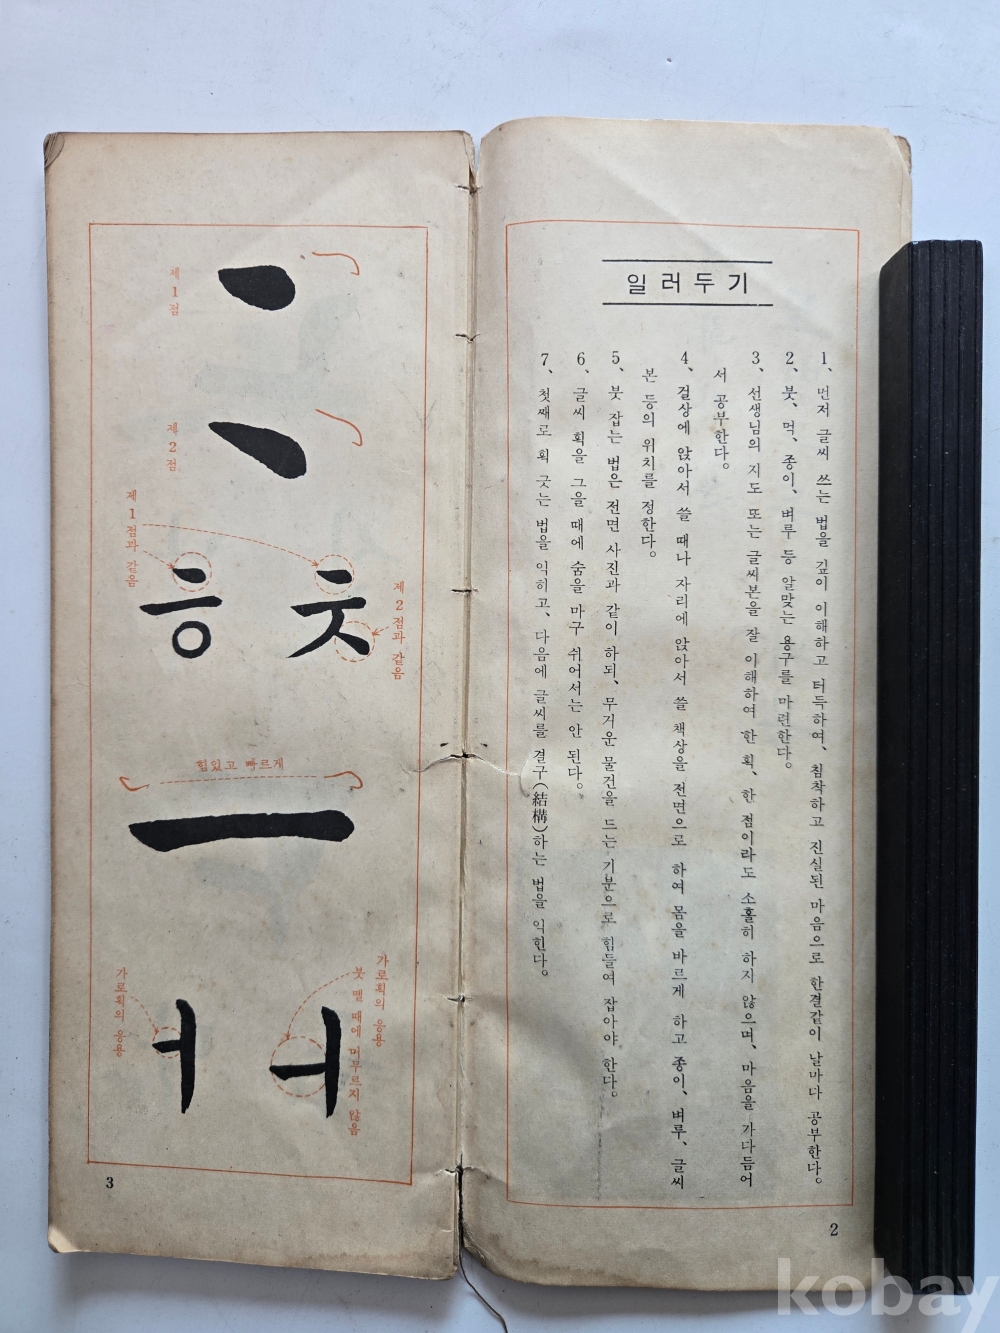 일러두기
1、먼저 글씨 쓰는 법을 깊이 이해하고 터득하여、침착하고 진실된 마음으로 한결같이 날마다 공부한다。
2、붓、먹、종이、벼루 등 알맞는 용구를 마련한다。
3、선생님의 지도 또는 글씨본을 잘 이해하여 한 획、한 점이라도 소홀히 하지 않으며、마음을 가다듬어
서 공부한다。
4、걸상에 앉아서 쓸 때나 자리에 앉아서 쓸 책상을 전면으로 하여 몸을 바르게 하고 종이、벼루、글씨
본 등의 위치를 정한다。
5、붓 잡는 법은 전면 사진과 같이 하되、무거운 물건을 드는 기분으로 힘들여 잡아야 한다。
6、글씨 획을 그을 때에 숨을 마구 쉬어서는 안 된다。
7、첫째로 획 긋는 법을 익히고、다음에 글씨를 결구(結構)하는 법을 익힌다。
2
제1점
제2점
제1점과 같음
제2점과 같음
응
읏
힘있고 빠르게
ㅡ
가로획의 응용
붓 뗄 때에 머무르지 않음
ㅓ
가로획의 응용
ㅓ
3
kobay